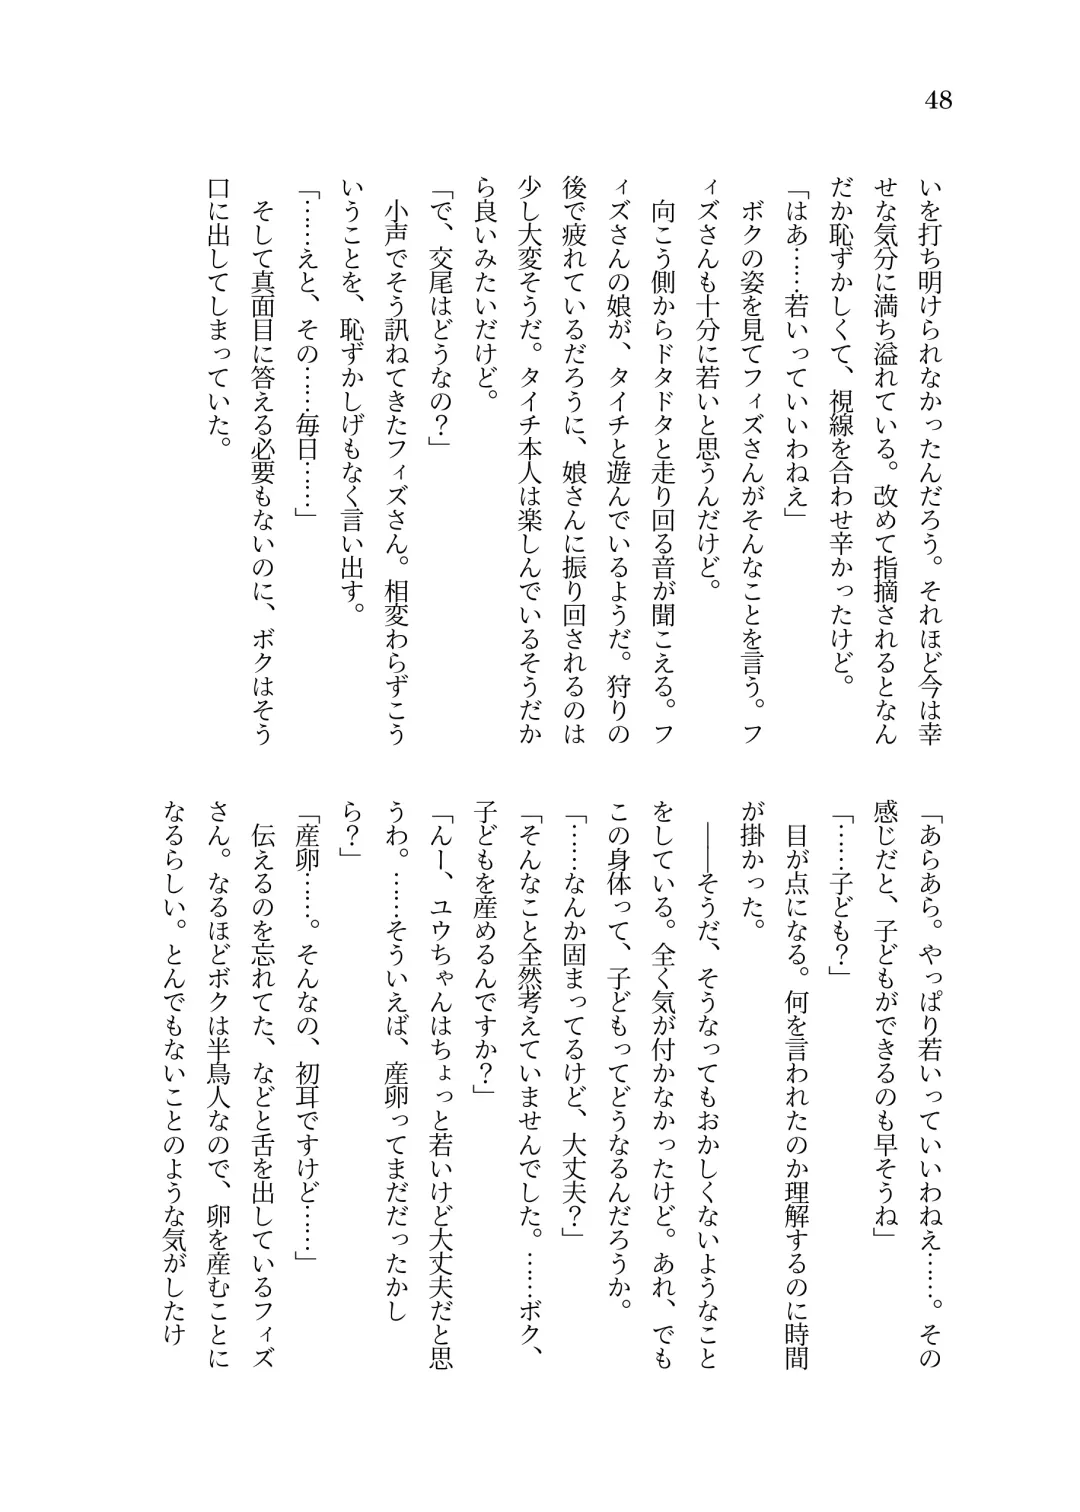 48
いを打ち明けられなかったんだろう。それほど今は幸
せな気分に満ち溢れている。改めて指摘されるとなん
だか恥ずかしくて、視線を合わせ辛かったけど。
「はあ……若いっていいわねえ」
　ボクの姿を見てフィズさんがそんなことを言う。フ
ィズさんも十分に若いと思うんだけど。
　向こう側からドタドタと走り回る音が聞こえる。フ
ィズさんの娘が、タイチと遊んでいるようだ。狩りの
後で疲れているだろうに、娘さんに振り回されるのは
少し大変そうだ。タイチ本人は楽しんでいるそうだか
ら良いみたいだけど。
「で、交尾はどうなの？」
　小声でそう訊ねてきたフィズさん。相変わらずこう
いうことを、恥ずかしげもなく言い出す。
「……えと、その……毎日……」
　そして真面目に答える必要もないのに、ボクはそう
口に出してしまっていた。
「あらあら。やっぱり若いっていいわねえ……。その
感じだと、子どもができるのも早そうね」
「……子ども？」
　目が点になる。何を言われたのか理解するのに時間
が掛かった。
　――そうだ、そうなってもおかしくないようなこと
をしている。全く気が付かなかったけど。あれ、でも
この身体って、子どもってどうなるんだろうか。
「……なんか固まってるけど、大丈夫？」
「そんなこと全然考えていませんでした。……ボク、
子どもを産めるんですか？」
「んー、ユウちゃんはちょっと若いけど大丈夫だと思
うわ。……そういえば、産卵ってまだだったかし
ら？」
「産卵……。そんなの、初耳ですけど……」
　伝えるのを忘れてた、などと舌を出しているフィズ
さん。なるほどボクは半鳥人なので、卵を産むことに
なるらしい。とんでもないことのような気がしたけ